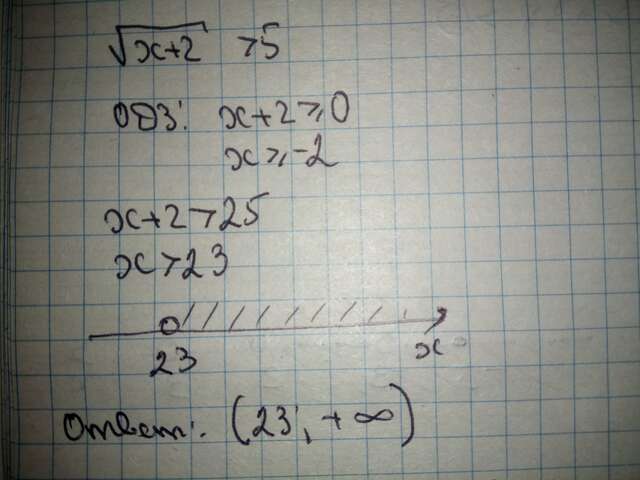 √(x+2) > 5
ОДЗ: x+2 ⩾ 0
x ⩾ -2
x+2 > 25
x > 23
23
x
Ответ: (23; +∞)